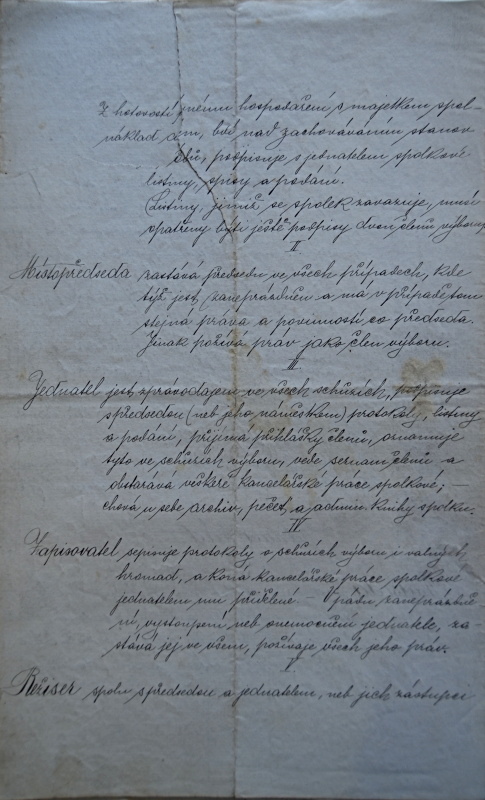 z hotovosti, němu hospodaření s majetkem spol-
náklad
bdí nad zachováváním stanov
podpisuje s jednatelem spolkové
listiny, spisy a podání.
Listiny, jimiž se spolek zavazuje, musí
opatřeny býti ještě podpisy dvou členů výboru
II
Místopředseda zastává předsedu ve všech případech, kde
týž jest zaneprázdněn a má v případě tom
stejná práva a povinnosti co předseda.
Jinak požívá práv jako člen výboru.
III
Jednatel jest zpravodajem ve všech schůzích, podpisuje
s předsedou (neb jeho náměstkem) protokoly, listiny
a podání, přijímá přihlášky členů, oznamuje
tyto ve schůzích výboru, vede seznam členů a
obstarává veškeré kancelářské práce spolkové; —
chová u sebe archiv, pečeť a admin. knihy spolku.
IV
Zapisovatel sepisuje protokoly o schůzích výboru i valných
hromad, a koná kancelářské práce spolkové
jednatelem mu přidělené — V pádu zaneprázdně-
ní, vystoupení neb onemocnění jednatele, za-
stává jej ve všem, požívaje všech jeho práv.
V
Režiser spolu s předsedou a jednatelem, neb jich zástupci